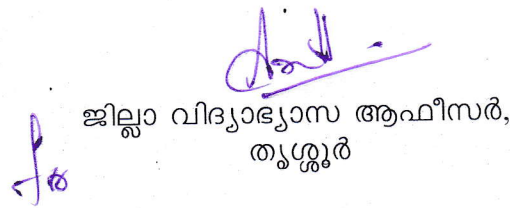 ജില്ലാ വിദ്യാഭ്യാസ ആഫീസർ,
തൃശ്ശൂർ